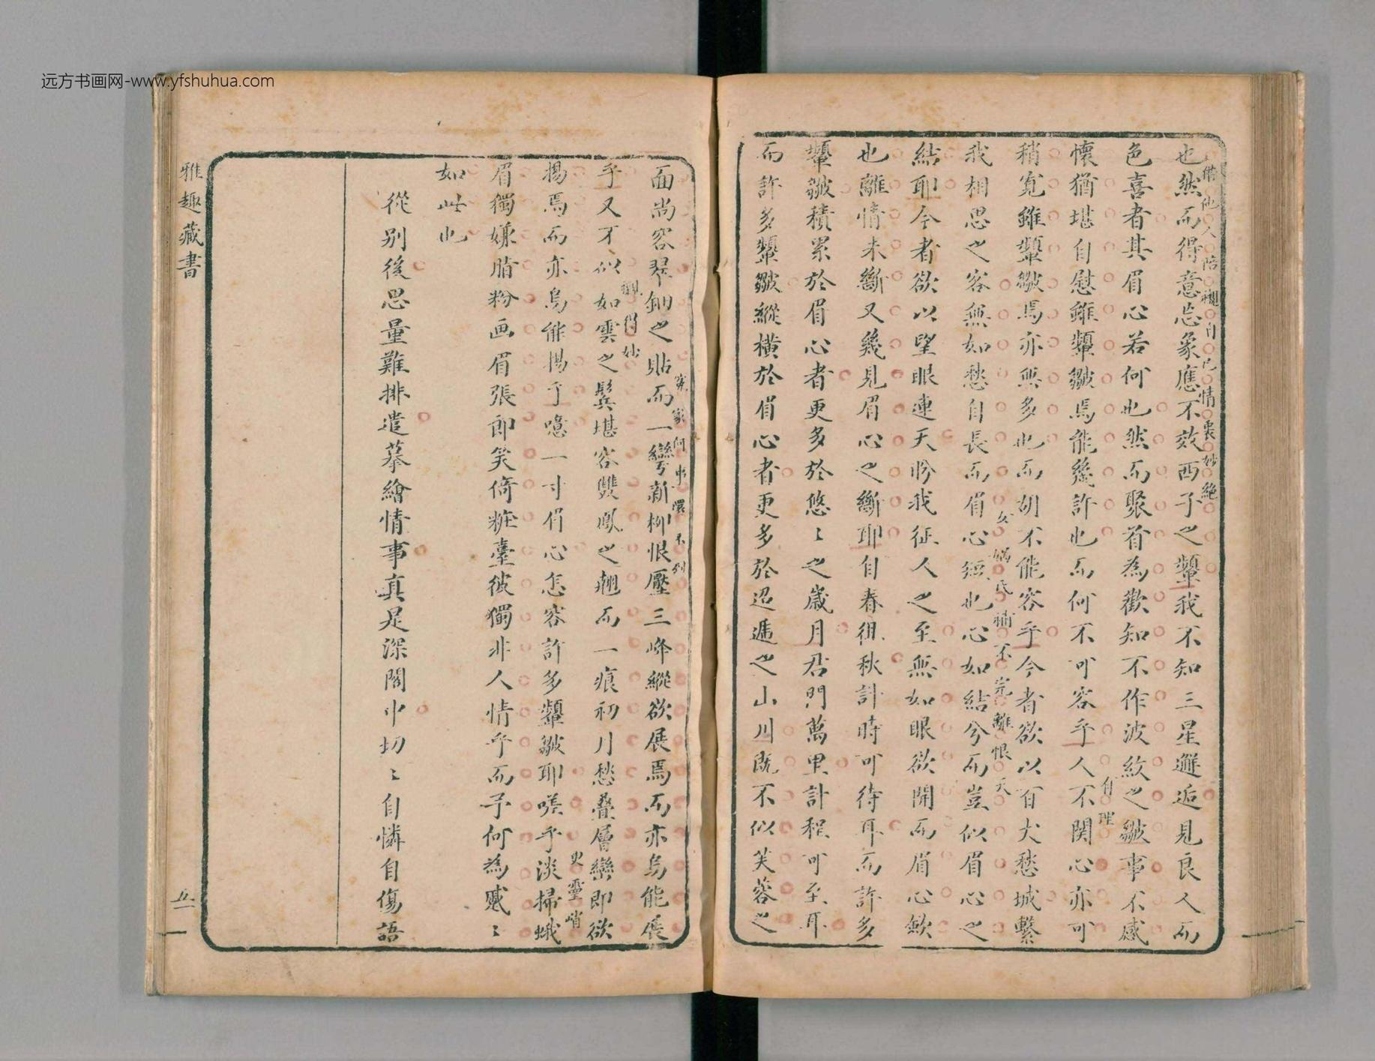 远方书画网-www.yfshuhua.com
也然而得意忘象應不效西子之顰我不知三星邂逅見良人而
借他人陪襯自己情裏妙絕
色喜者其眉心若何也然而聚首為歡知不作波紋之皺事不感
懷猶堪自慰雖顰皺焉能幾許也而何不可容乎人不關心亦可
自理
稍寬雖顰皺焉亦無多也而胡不能容乎今者欲以百丈愁城繫
女媧氏補不完離恨天
我相思之客無如愁自長而眉心短也心如結兮而豈似眉心之
結耶今者欲以望眼連天盼我征人之至無如眼欲開而眉心歛
也離情未斷又幾見眉心之斷耶自春徂秋計時可待耳而許多
顰皺積累於眉心者更多於悠〻之歲月君門萬里計程可至耳
而許多顰皺縱橫於眉心者更多於迢遞之山川既不似芙蓉之
面尚容翠鈿之貼而一彎新柳恨壓三峰縱欲展焉而亦烏能展
乎又不似如雲之鬓堪容雙鳳之翹而一痕初月愁叠層巒即欲
襯得妙
揚焉而亦烏能揚乎噫一寸眉心怎容許多顰皺耶嗟乎淡掃蛾
更靈峭
眉獨嫌脂粉画眉張郎笑倚粧臺彼獨非人情乎而予何為蹙〻
如此也
從别後思量難排遣摹繪情事真是深閨中切〻自憐自傷語
雅趣藏書
五一